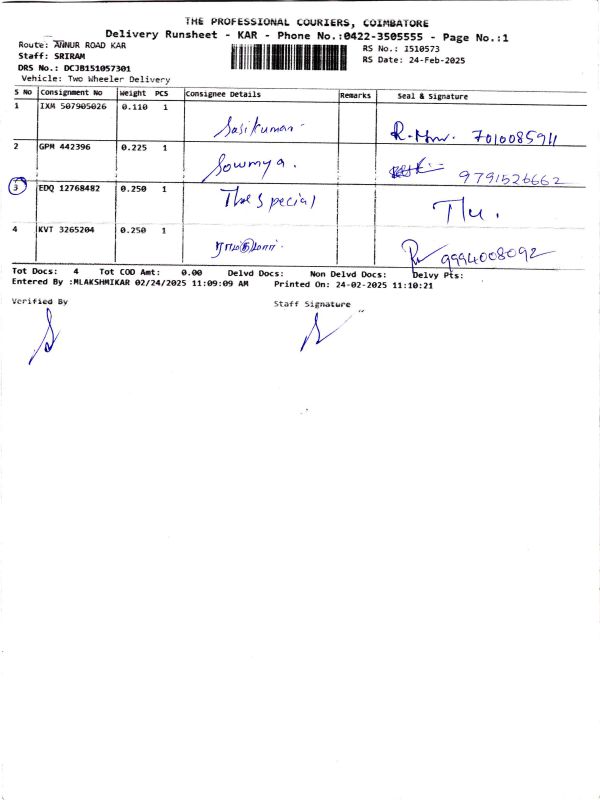 THE PROFESSIONAL COURIERS, COIMBATORE
Delivery Runsheet - KAR - Phone No.:0422-3505555 - Page No.:1
Route: ANNUR ROAD KAR
Staff: SRIRAM
DRS No.: DCJB151057301
Vehicle: Two Wheeler Delivery
RS No.: I510573
RS Date: 24-Feb-2025
S NO Consignment No Weight PCS Consignee Details Remarks Seal & Signature
1 IXM 507905026 0.110 1 Sasikumar 7010085911
2 GPM 442396 0.225 1 Sowmya. 9791526662
3 EDQ 12768482 0.250 1 The Special
4 KVT 3265204 0.250 1 9994008092
Tot Docs: 4 Tot COD Amt: 0.00 Delvd Docs: Non Delvd Docs: Delvy Pts:
Entered By :MLAKSHMIKAR 02/24/2025 11:09:09 AM Printed On: 24-02-2025 11:10:21
Verified By Staff Signature